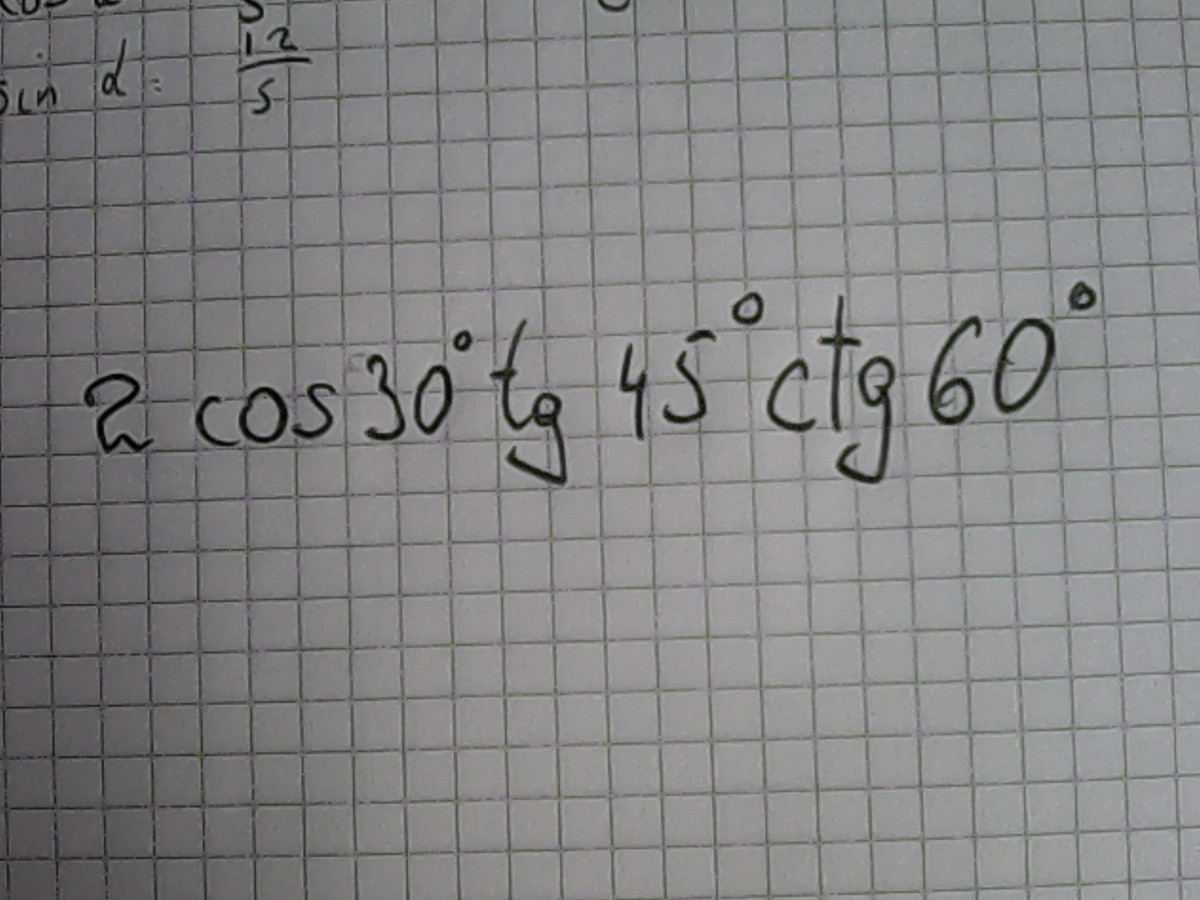 sin α = 12/5
2 cos 30° tg 45° ctg 60°